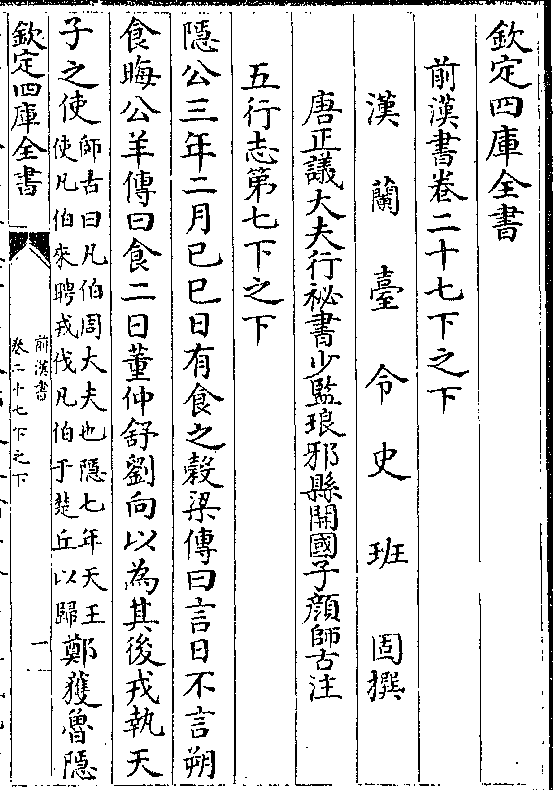 欽定四庫全書
前漢書卷二十七下之下
漢蘭臺令史班固撰
唐正議大夫行祕書少監琅邪縣開國子顔師古注
五行志第七下之下
隱公三年二月己巳日有食之穀梁傳曰言日不言朔
食晦公羊傳曰食二日董仲舒劉向以為其後戎執天
子之使師古曰凡伯周大夫也隱七年天王
使凡伯來聘戎伐凡伯于楚丘以歸鄭獲魯隱
欽定四庫全書
前漢書
卷二十七下之下
一